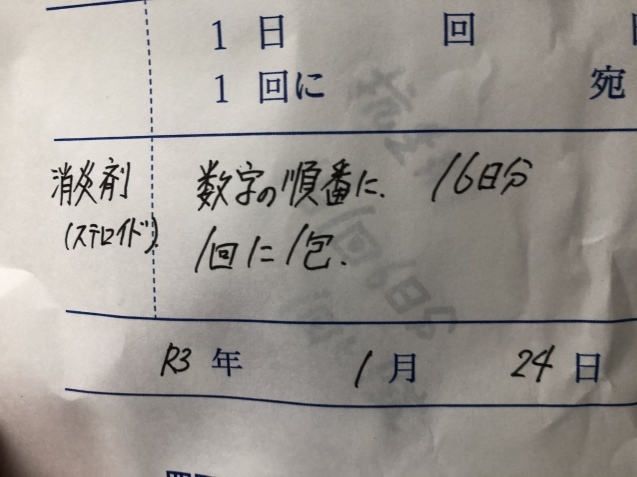 1 日 回
1 回に 宛
消炎剤 数字の順番に. 16日分
(ステロイド). 1回に1包.
R3 年 1 月 24 日